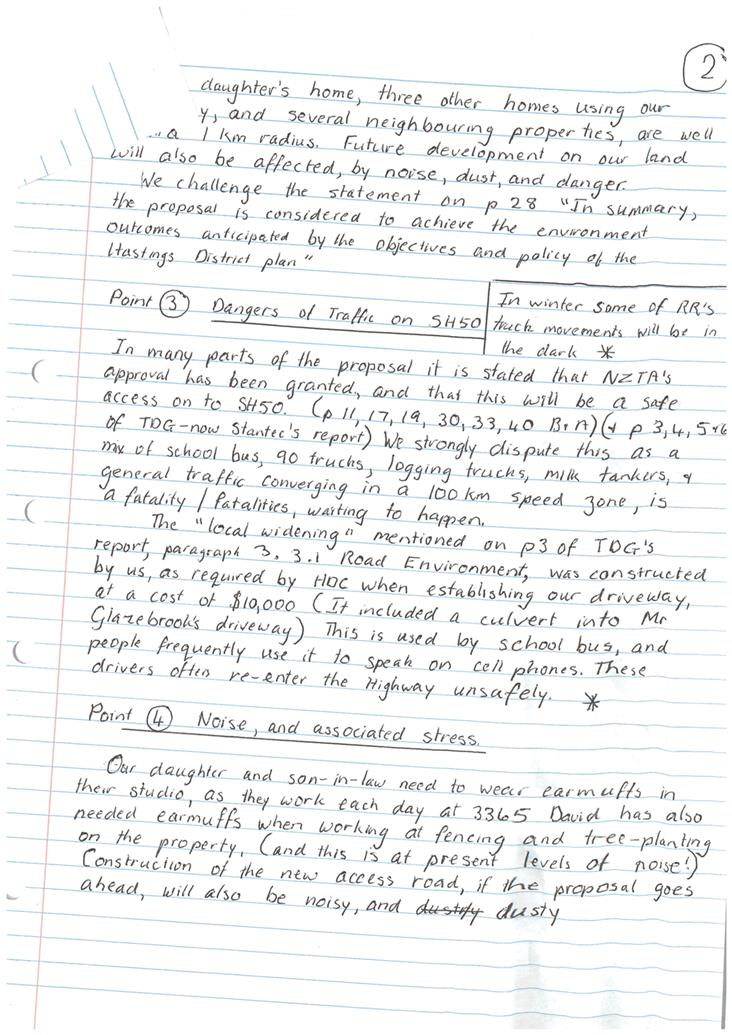 2
daughter's home, three other homes using our
y, and several neighbouring properties, are well
a 1 km radius. Future development on our land
will also be affected, by noise, dust, and danger.
We challenge the statement on p 28 "In summary,
the proposal is considered to achieve the environment
outcomes anticipated by the objectives and policy of the
Hastings District plan"
Point 3 Dangers of Traffic on SH50
In winter some of RR's
truck movements will be in
the dark *
In many parts of the proposal it is stated that NZTA's
approval has been granted, and that this will be a safe
access on to SH50. (p 11, 17, 19, 30, 33, 40 B+A) (+ p 3, 4, 5+6
of TDG-now Stantec's report) We strongly dispute this as a
mix of school bus, 90 trucks, logging trucks, milk tankers, +
general traffic converging in a 100 km speed zone, is
a fatality / fatalities, waiting to happen.
The "local widening" mentioned on p3 of TDG's
report, paragraph 3.3.1 Road Environment, was constructed
by us, as required by HDC when establishing our driveway,
at a cost of $10,000 (It included a culvert into Mr
Glazebrook's driveway) This is used by school bus, and
people frequently use it to speak on cell phones. These
drivers often re-enter the Highway unsafely. *
Point 4 Noise, and associated stress.
Our daughter and son-in-law need to wear earmuffs in
their studio, as they work each day at 3365 David has also
needed earmuffs when working at fencing and tree-planting
on the property, (and this is at present levels of noise!)
Construction of the new access road, if the proposal goes
ahead, will also be noisy, and dustify dusty